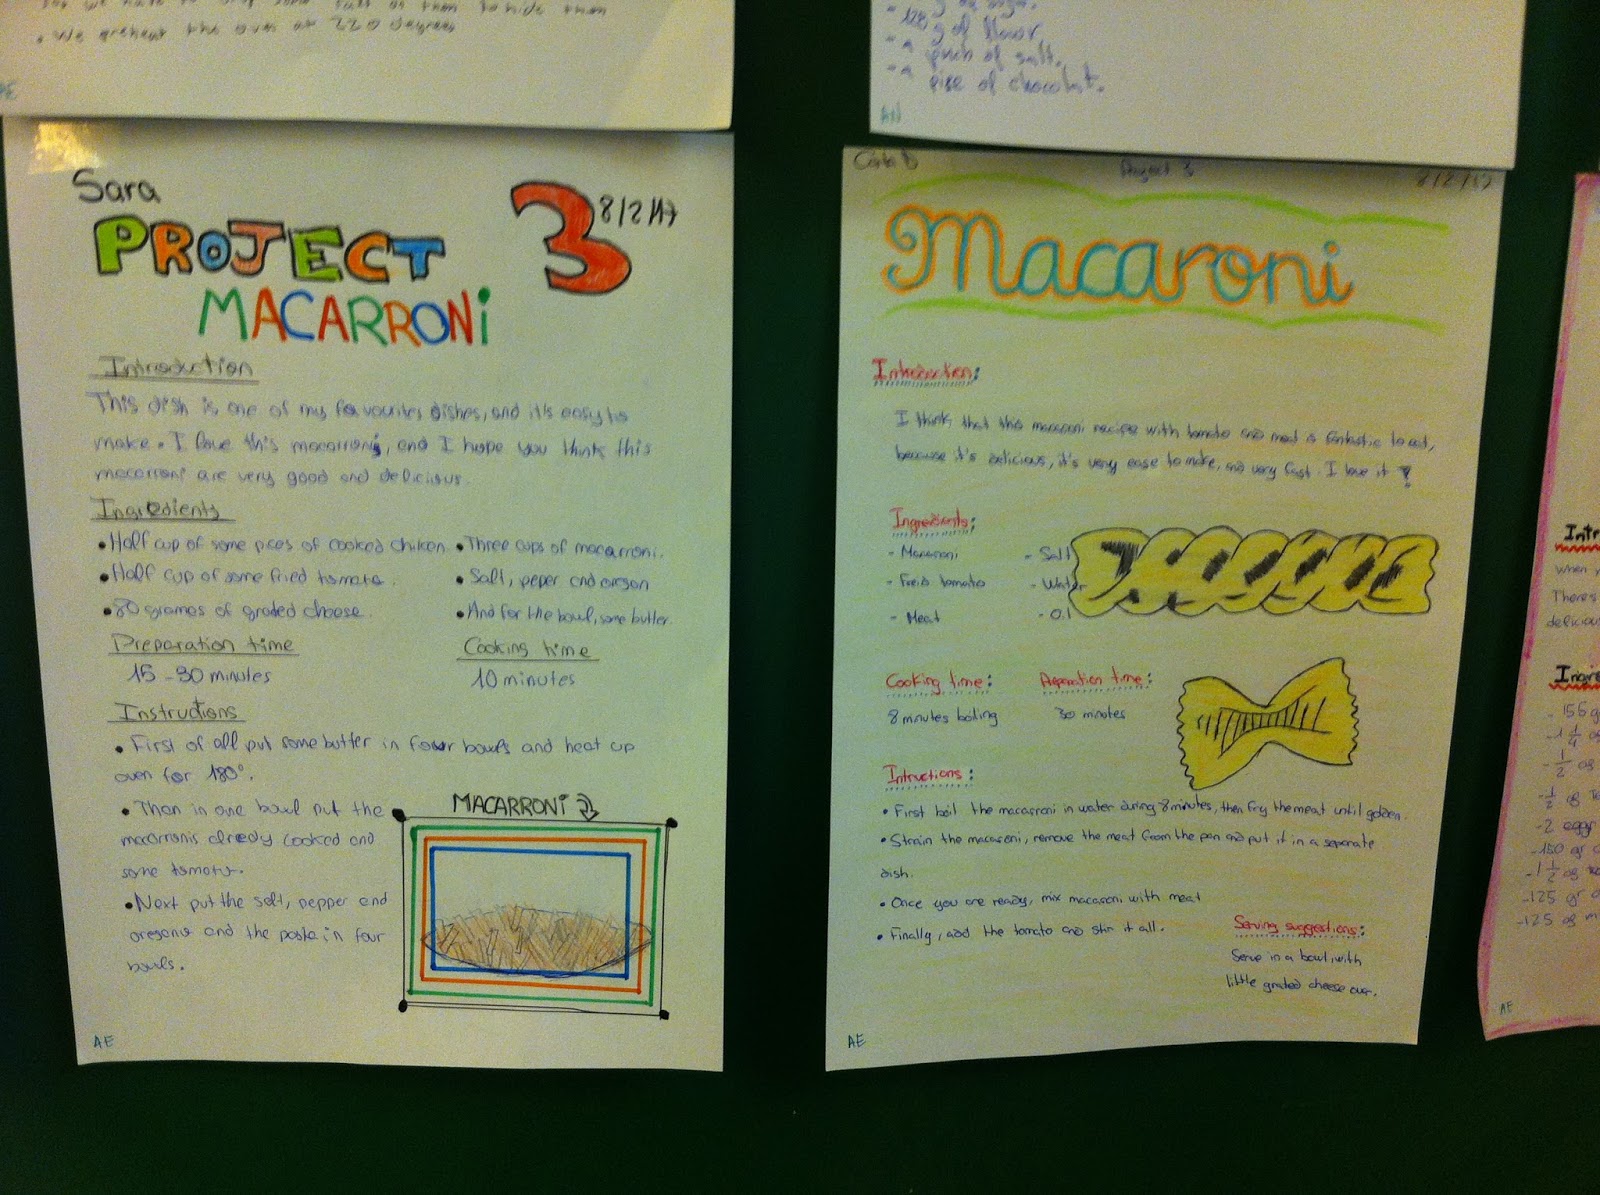 • We preheat the oven at 220 degrees
g of flour.
- a pinch of salt.
- a pise of chocolat.
AN
Sara
3
8/2/17
PROJECT
MACARRONi
Introduction
This dish is one of my favourites dishes, and it's easy to
make. I love this macarronis, and I hope you think this
macarroni are very good and delicious.
Ingredients
• Half cup of some pices of cooked chiken.
• Half cup of some fried tomato.
• 80 grames of graded cheese.
• Three cups of macarroni.
• Salt, peper and oregon
• And for the bowl, some butter.
Preparation time
15 - 30 minutes
Cooking time
10 minutes
Instructions
• First of all put some butter in four bowls and heat up
oven for 180°.
• Then in one bowl put the
macarronis already cooked and
some tomato.
• Next put the salt, pepper and
oregano and the pasta in four
bowls.
MACARRONi
AE
Carla D
Project 3
8/2/17
Macaroni
Introduction:
I think that this macaroni recipe with tomato and meat is fantastic to eat,
because it's delicious, it's very ease to make, and very fast. I love it!
Ingredients:
- Macaroni
- Freid tomato
- Meat
- Salt
- Water
- Oil
Cooking time:
8 minutes boiling
Preparation time:
30 minutes
Intructions:
• First boil the macarroni in water during 8 minutes, then fry the meat until golden.
• Strain the macaroni, remove the meat from the pan and put it in a separate
dish.
• Once you are ready, mix macaroni with meat
• Finally, add the tomato and stir it all.
Serving suggestions:
Serve in a bowl, with
little graded cheese over.
AE
Intr
When
There's
delicious
Ingre
- 155 g
- 1 1/4 of
- 1/2 of
- 1/2 of
- 2 eggs
- 150 gr
- 1 1/2 of
- 125 gr
- 125 of m
AE